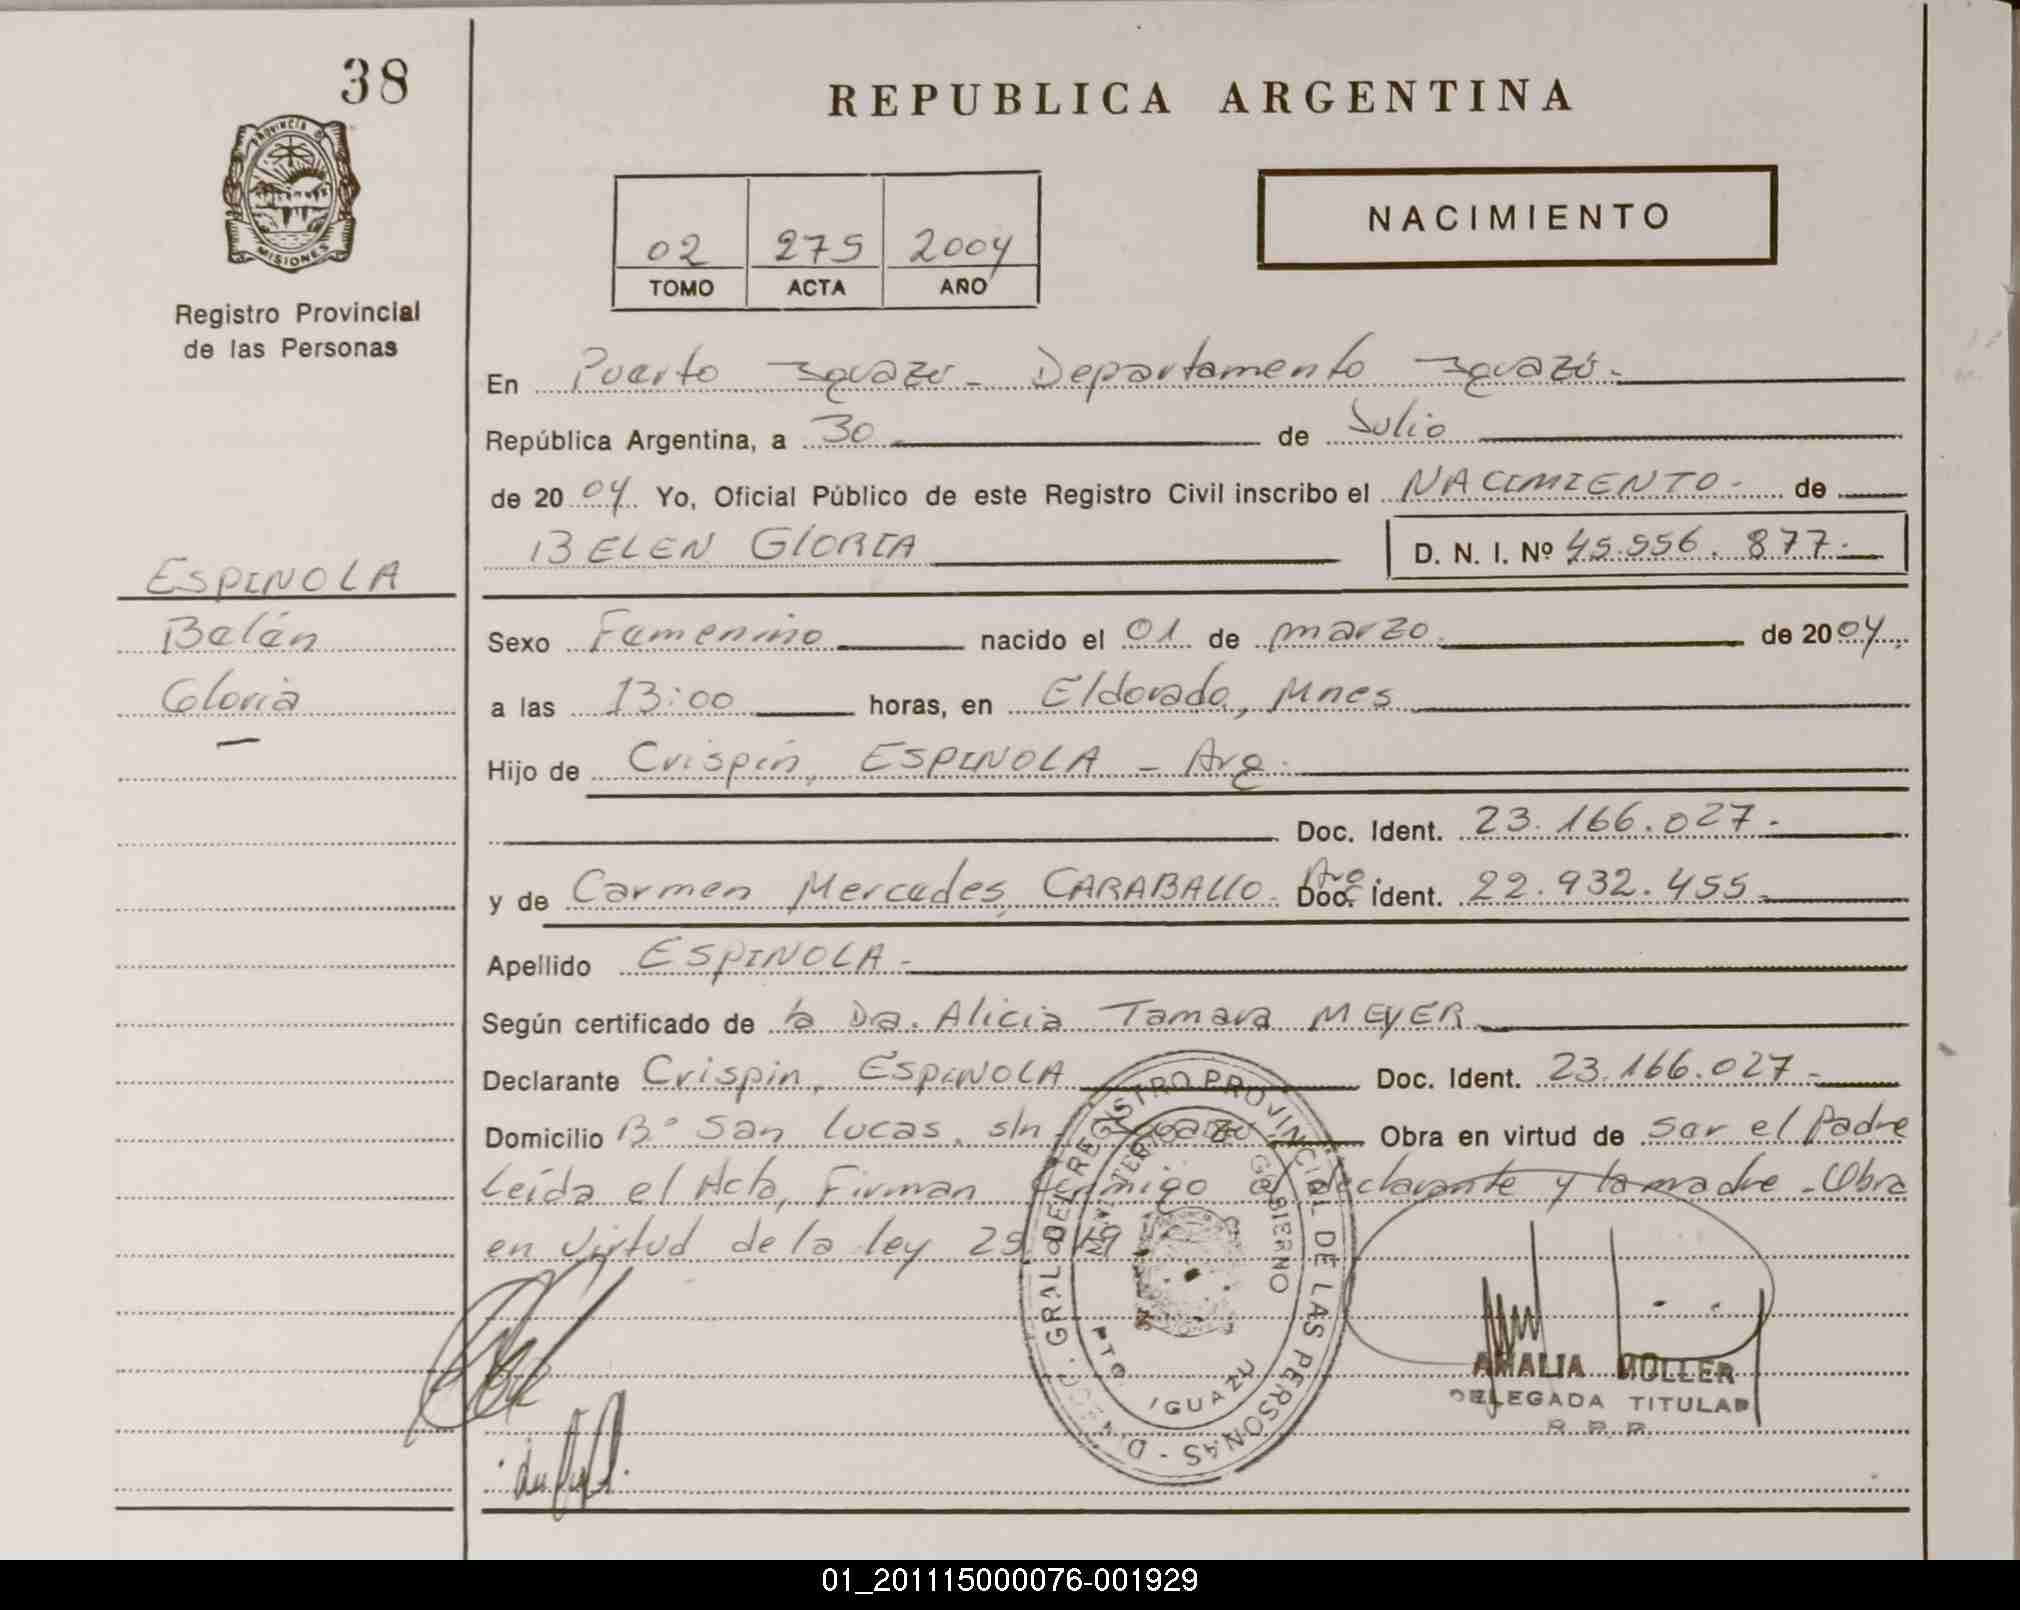 38
REPUBLICA ARGENTINA
PROVINCIA DE
MISIONES
Registro Provincial
de las Personas
NACIMIENTO
02 275 2004
TOMO ACTA AÑO
En Puerto Iguazú - Departamento Iguazú.
República Argentina, a 30 de Julio
de 2004 Yo, Oficial Público de este Registro Civil inscribo el NACIMIENTO. de
BELEN GLORIA D. N. I. Nº 45.556.877.
ESPINOLA
Belén
Gloria
Sexo Femenino nacido el 01 de marzo. de 2004,
a las 13:00 horas, en Eldorado, Mnes
Hijo de Crispín, ESPINOLA - Arg.
Doc. Ident. 23.166.027.
y de Carmen Mercedes, CARABALLO. Arg. Doc. Ident. 22.932.455.
Apellido ESPINOLA -
Según certificado de la Dra. Alicia Tamara MEYER
Declarante Crispín, ESPINOLA Doc. Ident. 23.166.027.
Domicilio Bº San Lucas, s/n - Iguazú Obra en virtud de Ser el Padre
Leída el Acta, Firman conmigo el declarante y la madre - Obra
en virtud de la ley
GRAL. DEL REGISTRO PROVINCIAL DE LAS PERSONAS
GOBIERNO
PTO. IGUAZU
AMALIA MOLLER
DELEGADA TITULAR
R. P. P.
01_201115000076-001929